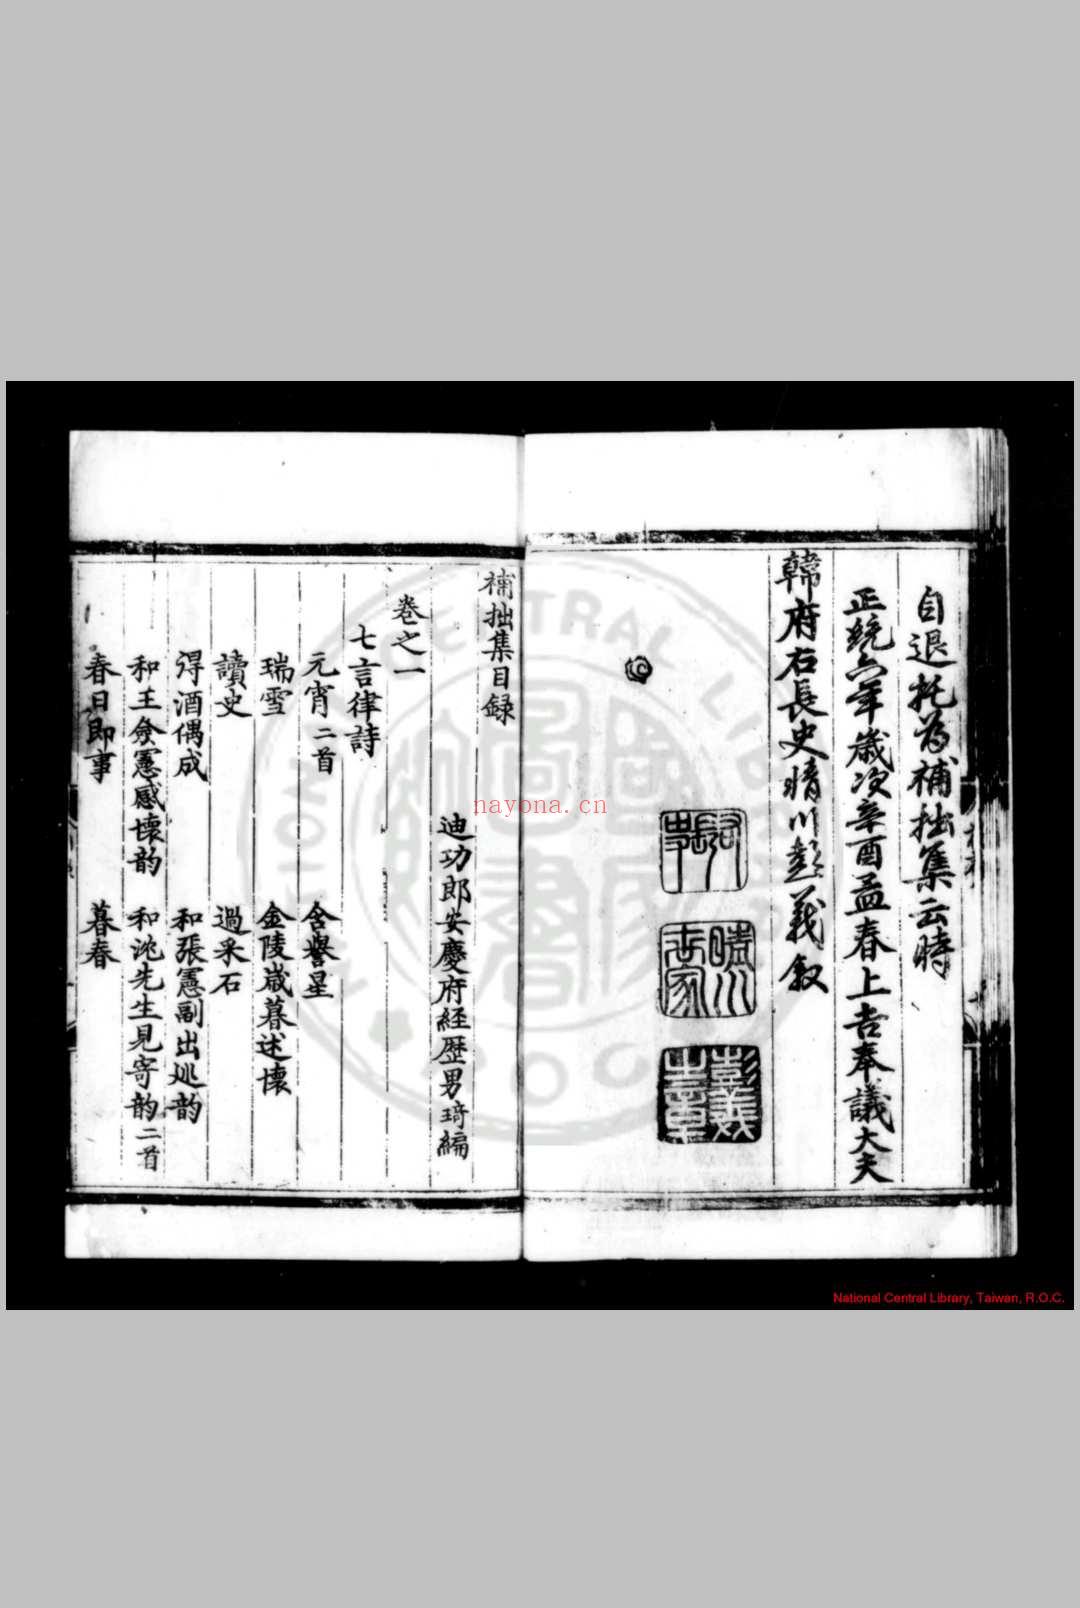 自退託為補拙集云時
正統六年歲次辛酉孟春上吉奉議大夫
韓府右長史晴川彭義叙
彭義
士章
補拙集目録
迪功郎安慶府経歴男琦編
卷之一
七言律詩
元宵二首 含譽星
瑞雪 金陵歲暮述懷
讀史 過采石
得酒偶成 和張憲副出巡韵
和王僉憲感懷韵 和沈先生見寄韵二首
春日即事 暮春
nayona.cn
National Central Library, Taiwan, R.O.C.